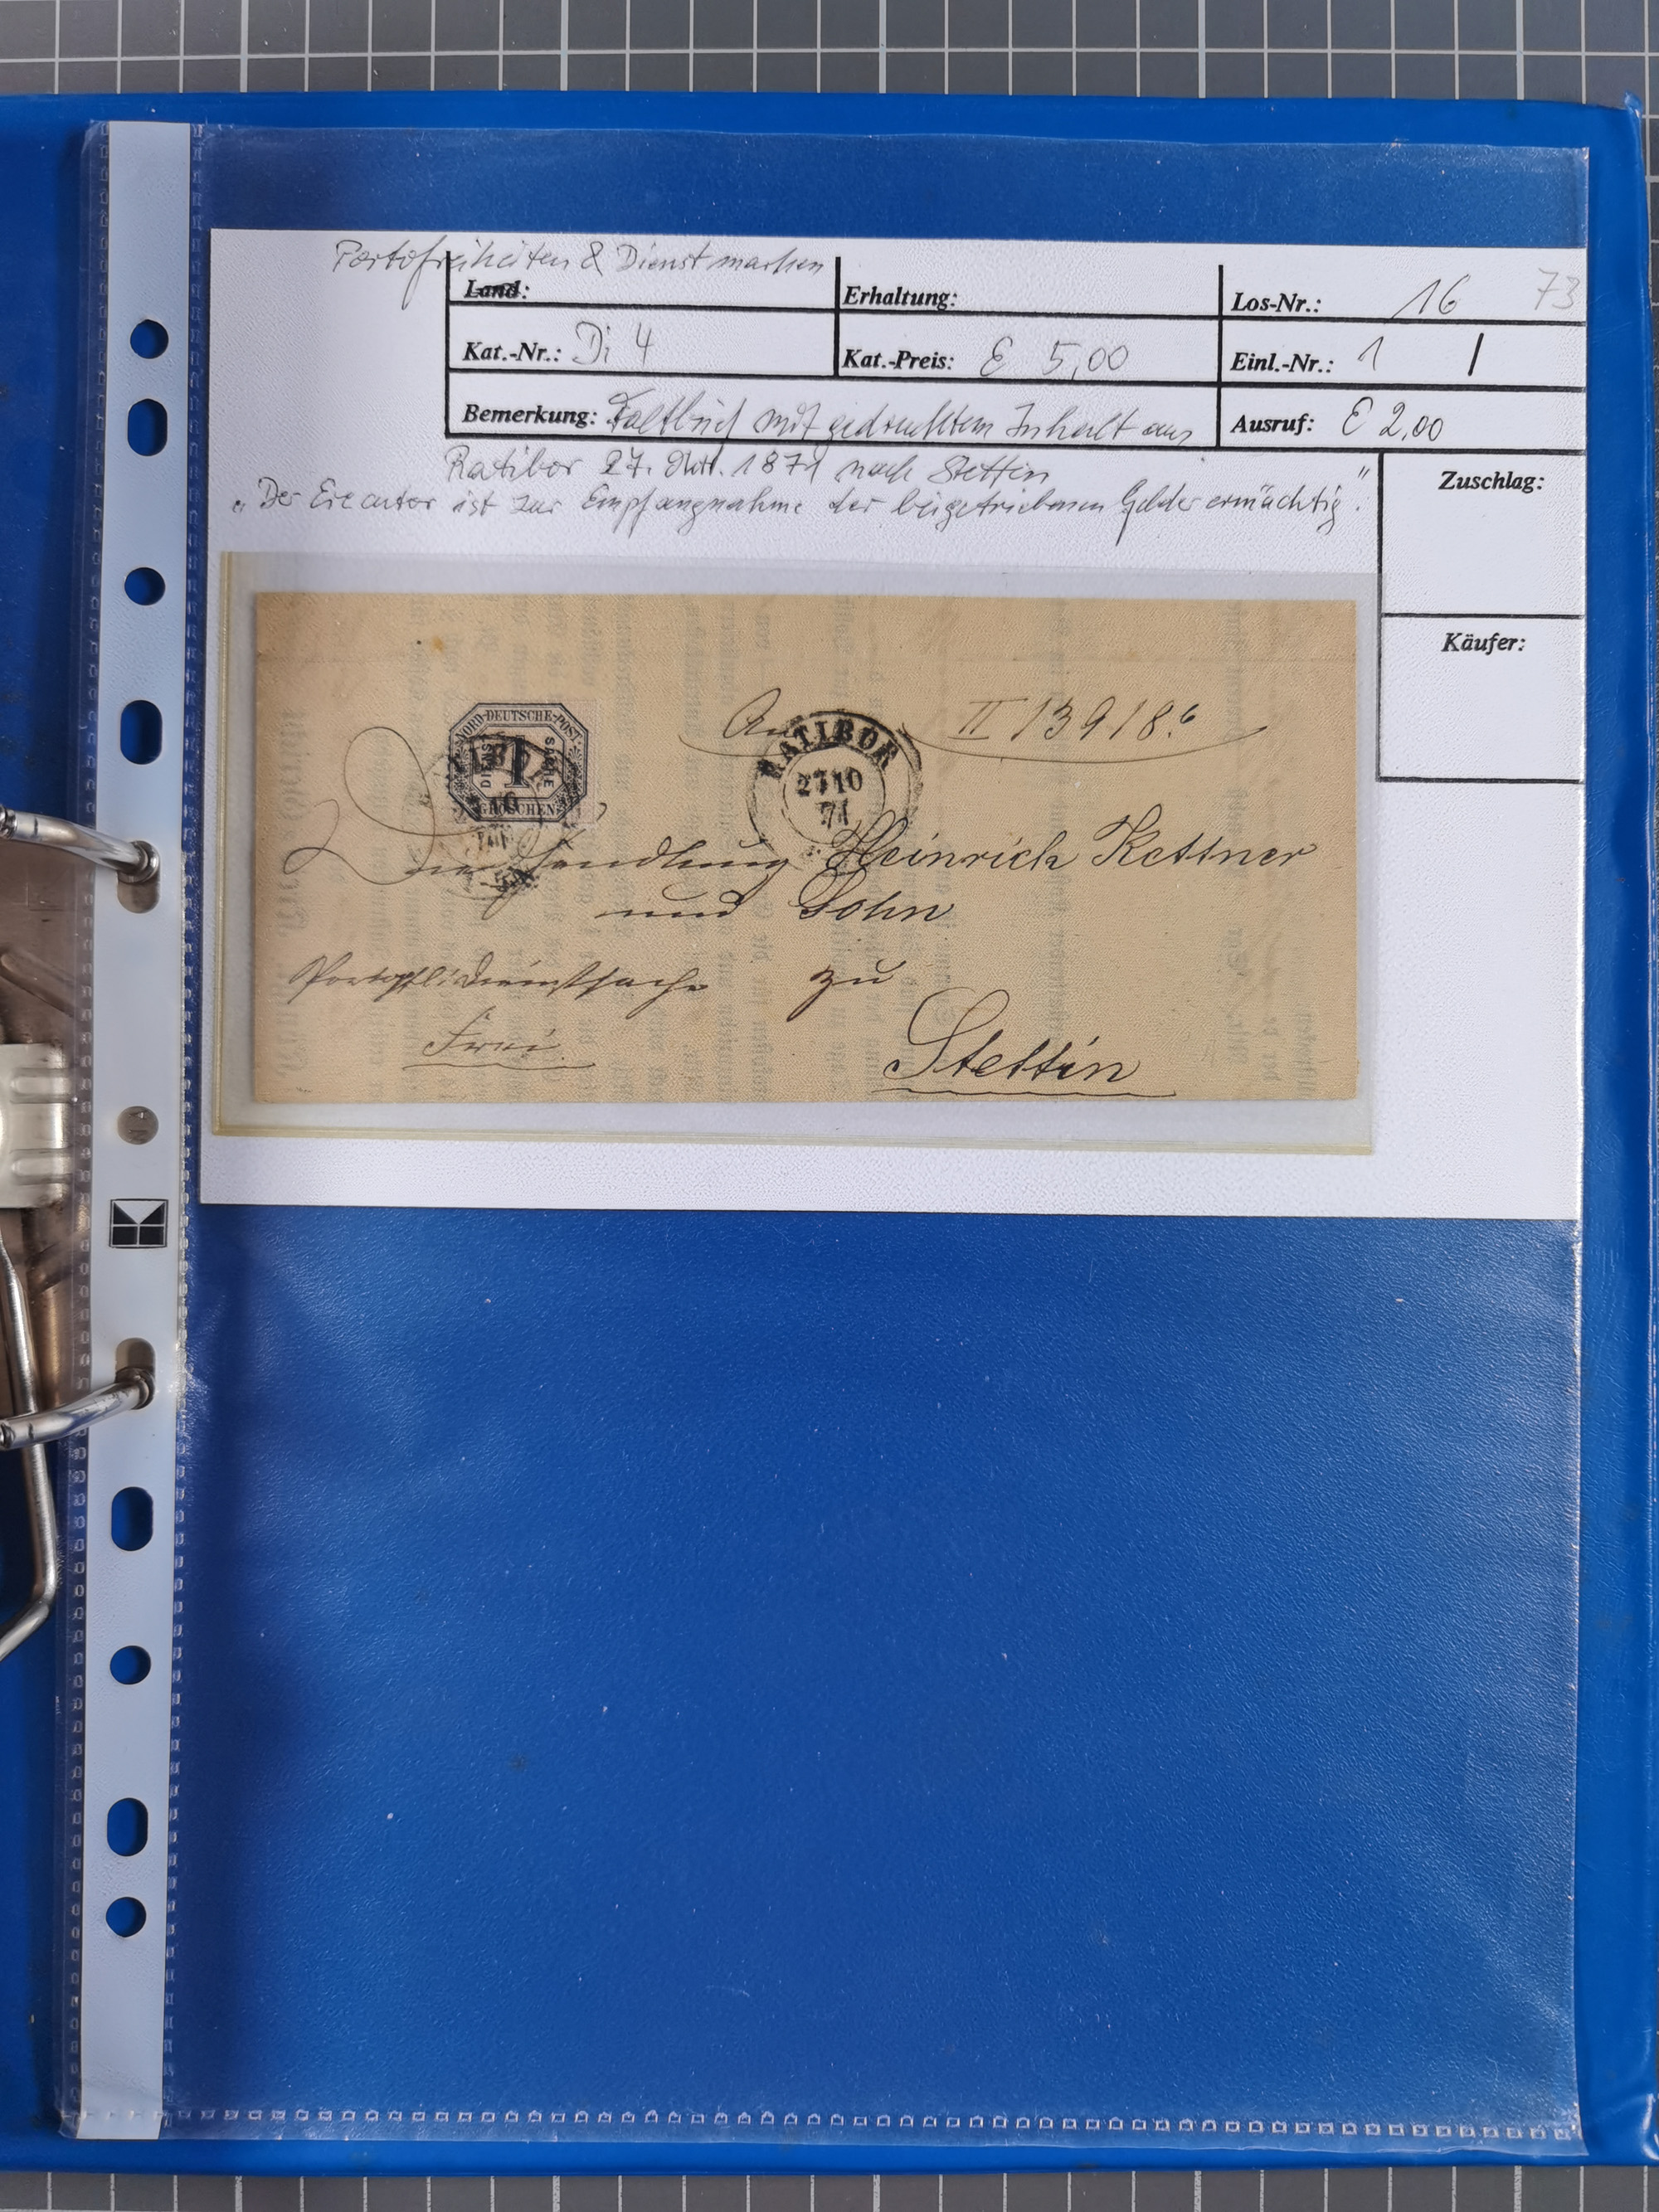 Portofreiheiten & Dienstmarken
Land:
Erhaltung:
Los-Nr.: 16 73
Kat.-Nr.: Di 4
Kat.-Preis: € 5,00
Einl.-Nr.: 1
Bemerkung: Faltbrief mit gedrucktem Inhalt aus
Ausruf: € 2,00
Ratibor 27. Okt. 1871 nach Stettin
„Der Executor ist zur Empfangnahme der beigetriebenen Gelder ermächtig“.
Zuschlag:
Käufer:
NORD-DEUTSCHE-POST
DIENST SACHE
1
GROSCHEN
An II 13918.
RATIBOR
27 10
71
Die Handlung Heinrich Kettner
und Sohn
zu
Frei
Stettin